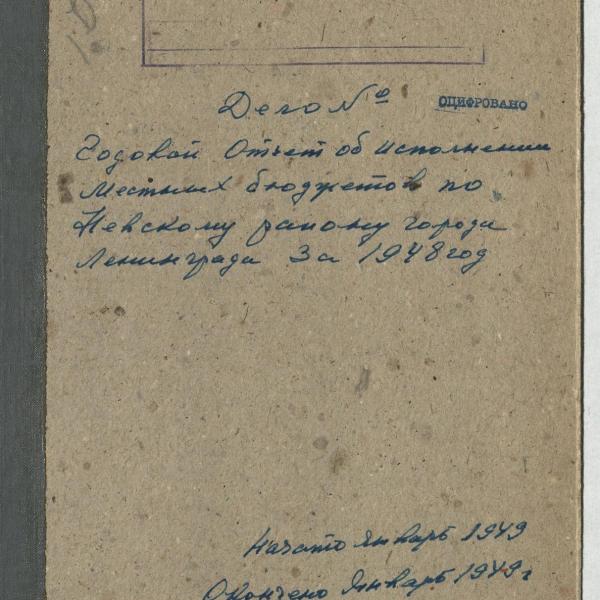 Дело №
ОЦИФРОВАНО
Годовой Отчет об исполнении
местных бюджетов по
Невскому району города
Ленинграда за 1948 год
Начато январь 1949
Окончено январь 1949 г